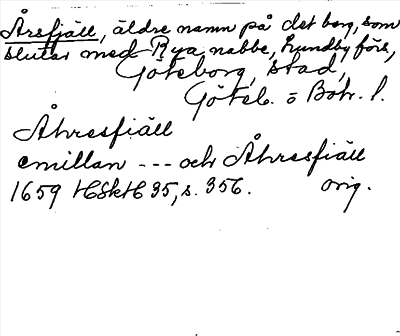 Årsfjäll, äldre namn på det berg, som
slutar med Rya nabbe, Lundby förs,
Göteborg, stad,
Göteb. o Boh. l.
Åhresfiäll
emillan --- och Åhresfiäll
1659 HSkH 35, s. 356. orig.